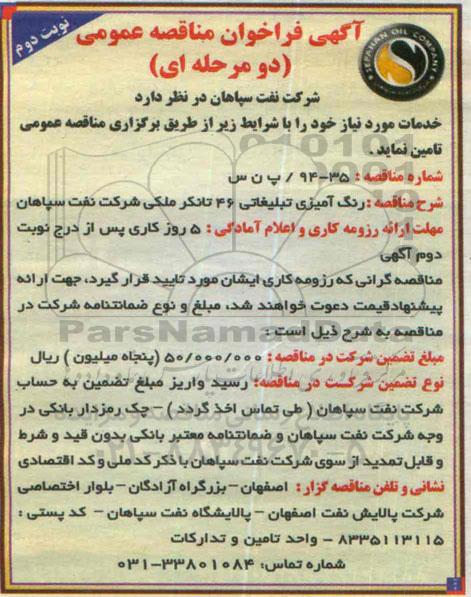 نوبت دوم
SEPAHAN OIL COMPANY
آگهی فراخوان مناقصه عمومی
(دو مرحله ای)
شرکت نفت سپاهان در نظر دارد
خدمات مورد نیاز خود را با شرایط زیر از طریق برگزاری مناقصه عمومی
تامین نماید.
شماره مناقصه : ۳۵-۹۴ / پ ن س
شرح مناقصه : رنگ آمیزی تبلیغاتی ۴۶ تانکر ملکی شرکت نفت سپاهان
مهلت ارائه رزومه کاری و اعلام آمادگی : ۵ روز کاری پس از درج نوبت
دوم آگهی
مناقصه گرانی که رزومه کاری ایشان مورد تایید قرار گیرد، جهت ارائه
پیشنهاد قیمت دعوت خواهند شد، مبلغ و نوع ضمانتنامه شرکت در
مناقصه به شرح ذیل است :
مبلغ تضمین شرکت در مناقصه : ۵۰/۰۰۰/۰۰۰ (پنجاه میلیون ) ریال
نوع تضمین شرکت در مناقصه: رسید واریز مبلغ تضمین به حساب
شرکت نفت سپاهان ( طی تماس اخذ گردد ) - چک رمزدار بانکی در
وجه شرکت نفت سپاهان و ضمانتنامه معتبر بانکی بدون قید و شرط
و قابل تمدید از سوی شرکت نفت سپاهان با ذکر کد ملی و کد اقتصادی
نشانی و تلفن مناقصه گزار : اصفهان - بزرگراه آزادگان - بلوار اختصاصی
شرکت پالایش نفت اصفهان - پالایشگاه نفت سپاهان - کد پستی :
۸۳۳۵۱۱۳۱۱۵ - واحد تامین و تدارکات
شماره تماس: ۳۳۸۰۱۰۸۴-۰۳۱
ParsNamadData